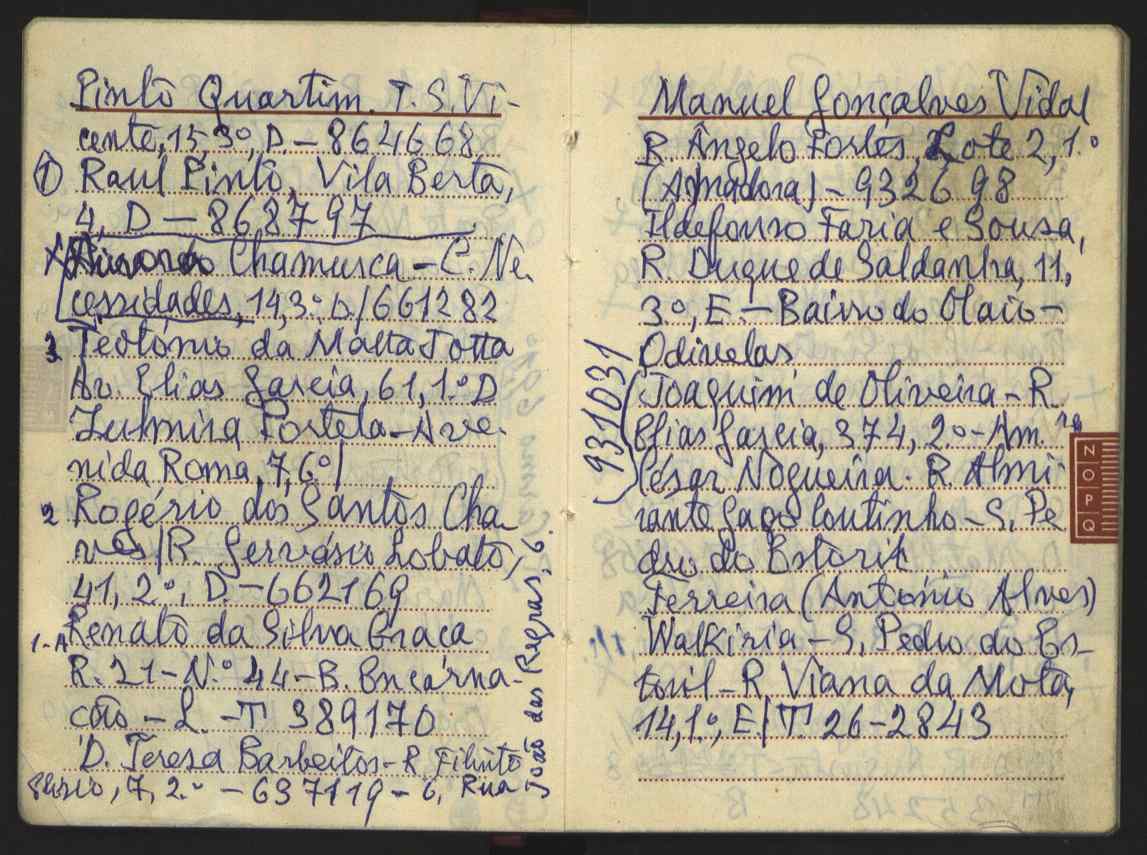 Pinto Quartim. T. S. Vi-
cente, 15, 3º, D. – 864668
① Raul Pinto, Vila Berta,
4, D – 868797
X Chamusca – C. Ne-
cessidades, 14, 3º D./661282
3 Teotónio da Matta Totta
Av. Elias Garcia, 61, 1.º D
Ludmira Portela – Ave-
nida Roma, 7, 6º/
2 Rogério dos Santos Cha-
ves/R. Gervásio Lobato,
41, 2.º, D – 662169
1-A Renato da Silva Graça
R. 21 – N.º 44 – B. Encarna-
ção – L. – T 389170
D. Teresa Barbeitos – R. Filinto
Elísio, 7, 2.º – 637119 – 6, Rua
João das Regras, 6.
Manuel Gonçalves Vidal
R. Ângelo Fortes, Lote 2, 1.º
(Amadora) – 932698
Ildefonso Faria e Sousa,
R. Duque de Saldanha, 11,
3º, E – Bairro do Olaio –
Odivelas
Joaquim de Oliveira – R.
Elias Garcia, 374, 2.º – Am.
931031
César Nogueira. R. Almi-
rante Gago Coutinho – S. Pe-
dro do Estoril
Ferreira (António Alves)
Walkiria – S. Pedro do Es-
toril – R. Viana da Mota,
14, 1.º, E/T. 26-2843
N
O
P
Q